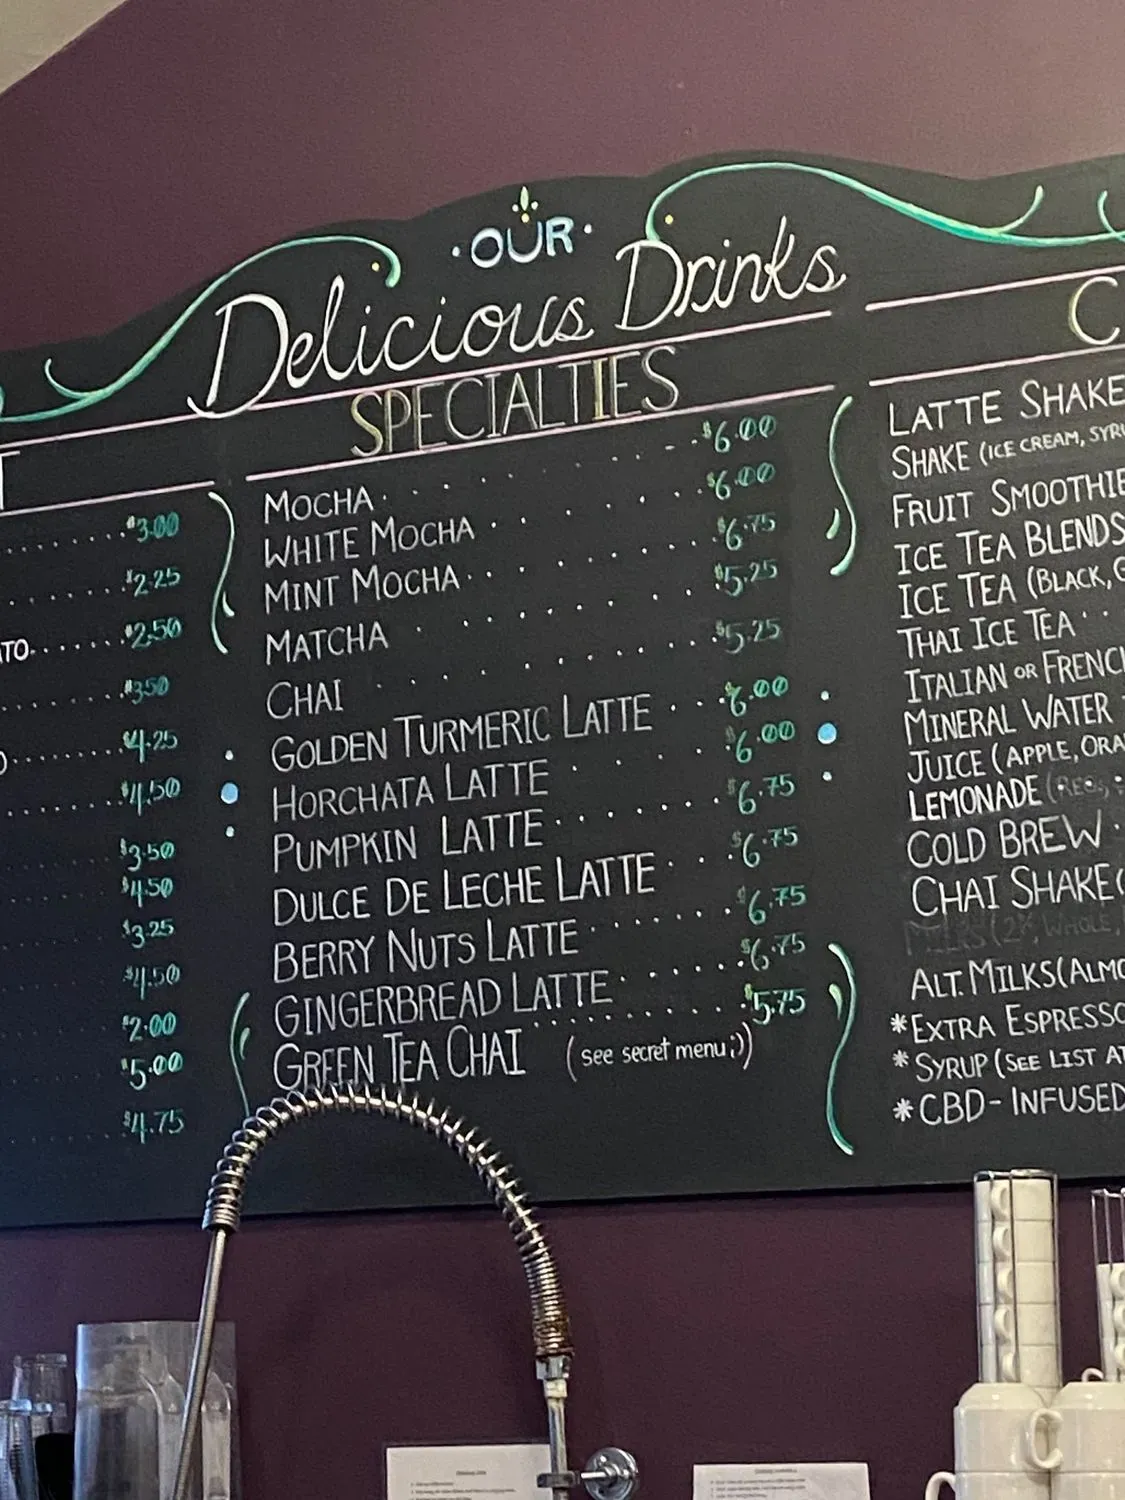 OUR
Delicious Drinks
T
$3.00
$2.25
ATO $2.50
$3.50
O $4.25
$4.50
$3.50
$4.50
$3.25
$4.50
$2.00
$5.00
$4.75
SPECIALTIES
MOCHA $6.00
WHITE MOCHA $6.00
MINT MOCHA $6.75
MATCHA $5.25
CHAI $5.25
GOLDEN TURMERIC LATTE $6.00
HORCHATA LATTE $6.00
PUMPKIN LATTE $6.75
DULCE DE LECHE LATTE $6.75
BERRY NUTS LATTE $6.75
GINGERBREAD LATTE $6.75
GREEN TEA CHAI $5.75
(see secret menu;))
C
LATTE SHAKE
SHAKE (ICE CREAM, SYRU
FRUIT SMOOTHIE
ICE TEA BLENDS
ICE TEA (BLACK, G
THAI ICE TEA
ITALIAN OR FRENCH
MINERAL WATER
JUICE (APPLE, ORA
LEMONADE (REG,
COLD BREW
CHAI SHAKE (
MILKS (2%, WHOLE,
ALT. MILKS (ALMO
*EXTRA ESPRESSO
*SYRUP (SEE LIST AT
*CBD-INFUSED